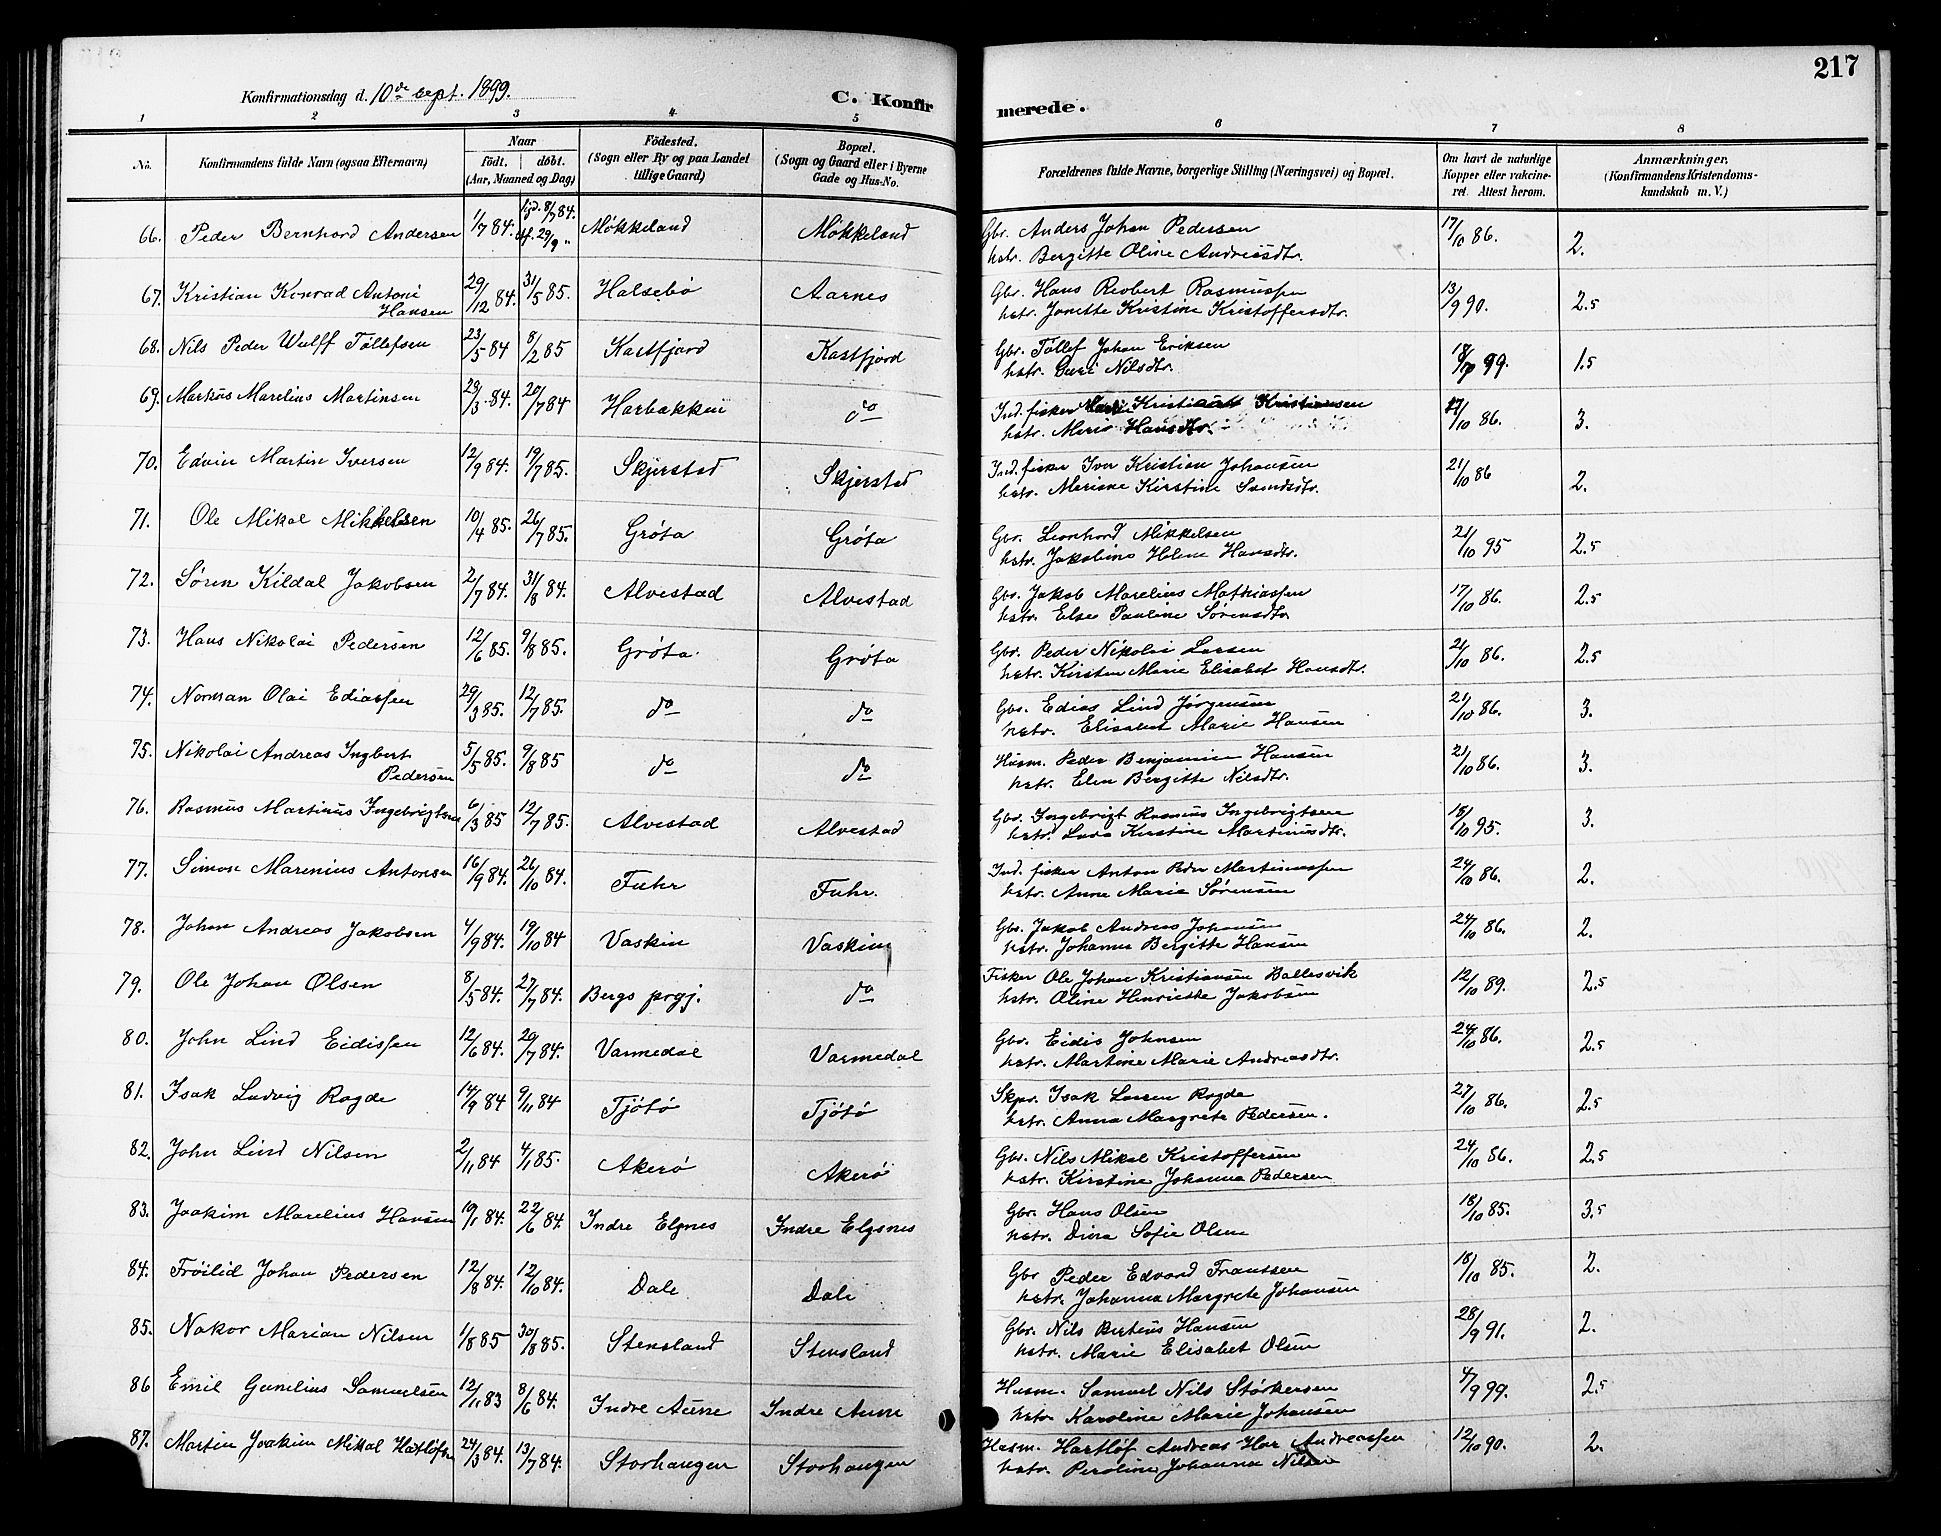 217
Konfirmationsdag d. 10de sept. 1899.
C. Konfirmerede.
1 2 3 4 5 6 7 8
No. Konfirmandens fulde Navn (ogsaa Efternavn) Naar födt. döbt. (Aar, Maaned og Dag) Födested. (Sogn eller By og paa Landet tillige Gaard) Bopæl. (Sogn og Gaard eller i Byerne Gade og Hus-No. Forældrenes fulde Navne, borgerlige Stilling (Næringsvei) og Bopæl. Om havt de naturlige Kopper eller vakcineret. Attest herom. Anmærkninger. (Konfirmandens Kristendomskundskab m. V.)
66. Peder Bernhard Andersen 1/7 84. hjd. 8/7 84. stf. 29/9 " Møkkeland Møkkeland Gbr. Anders Johan Pedersen 17/10 86. 2.
hstr. Bergitte Oline Andreasdtr.
67. Kristian Konrad Antoni Hansen 29/12 84. 31/5 85. Halsebø Aarnes Gbr. Hans Robert Rasmussen 13/9 90. 2.5
hstr. Jonette Kristine Kristoffersdtr.
68. Nils Peder Wulff Tollefsen 23/5 84 8/2 85 Kastfjord Kastfjord Gbr. Tollef Johan Eriksen 99. 1.5
hstr. Nilsdtr.
69. Markus Marelius Martinsen 29/3 84. 20/7 84 Harbakken do Ind. fisker Kristiansen 17/10 86. 3.
hstr. Hansdtr.
70. Edvin Martin Iversen 12/9 84. 19/7 85. Skjerstad Skjerstad Ind. fisker Iver Kristian Johansen 21/10 86 2.
hstr. Mariane Kirstine
71. Ole Mikal Mikkelsen 10/4 85. 26/7 85. Grøta Grøta Gbr. Leonhard Mikkelsen 21/10 95 2.5
hstr. Jakobine Helene Hansdtr.
72. Søren Kildal Jakobsen 2/7 84. 31/8 84. Alvestad Alvestad Gbr. Jakob Marelius Mathiassen 17/10 86. 2.5
hstr. Else Pauline Sørensdtr.
73. Hans Nikolai Pedersen 12/6 85. 9/8 85. Grøta. Grøta Gbr. Peder Nikolai Larsen 21/10 86. 2.5
hstr. Kirsten Marie Elisabet Hansdtr.
74. Norman Olai Ediassen 29/3 85. 12/7 85. do do Gbr. Edias Lind Jørgensen 21/10 86. 3.
hstr. Elisabet Marie Hansen
75. Nikolai Andreas Ingbert Pedersen 5/5 85. 9/8 85 do do Husm. Peder Benjamin Hansen 21/10 86. 3.
hstr. Elen Bergitte Nilsdtr.
76. Rasmus Martinus Ingebrigtsen 6/3 85 12/7 85. Alvestad Alvestad Gbr. Ingebrigt Rasmus Ingebrigtsen 18/10 95. 3.
hstr. Kirstine Martinusdtr.
77. Simon Marenius Antonsen 16/9 84. 26/10 84. Fuhr Fuhr. Ind. fisker Anton Peder Martinussen 24/10 86. 2.
hstr. Anne Marie Sørensen
78. Johan Andreas Jakobsen 4/9 84. 19/10 84 Vaskin Vaskinn Gbr. Jakob Andreas Johansen 24/10 86. 2.
hstr. Johanna Bergitte Hansen
79. Ole Johan Olsen 8/5 84. 27/7 84. Bergs prgj. do Fisker Ole Johan Kristiansen Ballesvik 12/10 89. 2.5
hstr. Oline Henriette Jakobsen
80. John Lind Eidissen 12/6 84. 20/7 84. Varmedal Varmedal Gbr. Eidis Johnsen 24/10 86. 2.5
hstr. Martine Marie Andreasdtr.
81. Isak Ludvig Rogde 14/9 84 9/11 84 Tjøtø Tjøtø Skpr. Isak Larsen Rogde 27/10 86. 2.5
hstr. Anna Margrete Pedersen.
82. John Lind Nilsen 2/11 84 4/1 85. Akerø Akerø Gbr. Nils Mikal Kristoffersen 24/10 86. 2.5
hstr. Kirstine Johanna Pedersen
83. Joakim Marelius Hansen 19/1 84. 22/6 84. Indre Elgnes Indre Elgsnes Gbr. Hans Olsen 18/10 85. 3.5
hstr. Dina Sofie Olsen
84. Frøilid Johan Pedersen 12/8 84. 12/10 84. Dale Dale Gbr Peder Edvard Frantsen 18/10 85. 2.
hstr. Johanna Margrete Johansen
85. Nakor Marian Nilsen 1/8 85 30/8 85. Stensland Stensland Gbr. Nils Berteus Hansen 28/9 91. 2.
hstr. Marie Elisabet Olsen
86 Emil Gunelius Samuelsen 12/11 83 8/6 84. Indre Aune Indre Aune Husm. Samuel Nils Størkersen 4/9 99. 2.5
hstr. Karoline Marie Johansen
87. Martin Joakim Mikal Hartløfsen 24/3 84. 13/7 84. Storhaugen Storhaugen Husm. Hartløf Andreas Andreassen 12/10 90. 2.
hstr. Peroline Johanna Nilsen